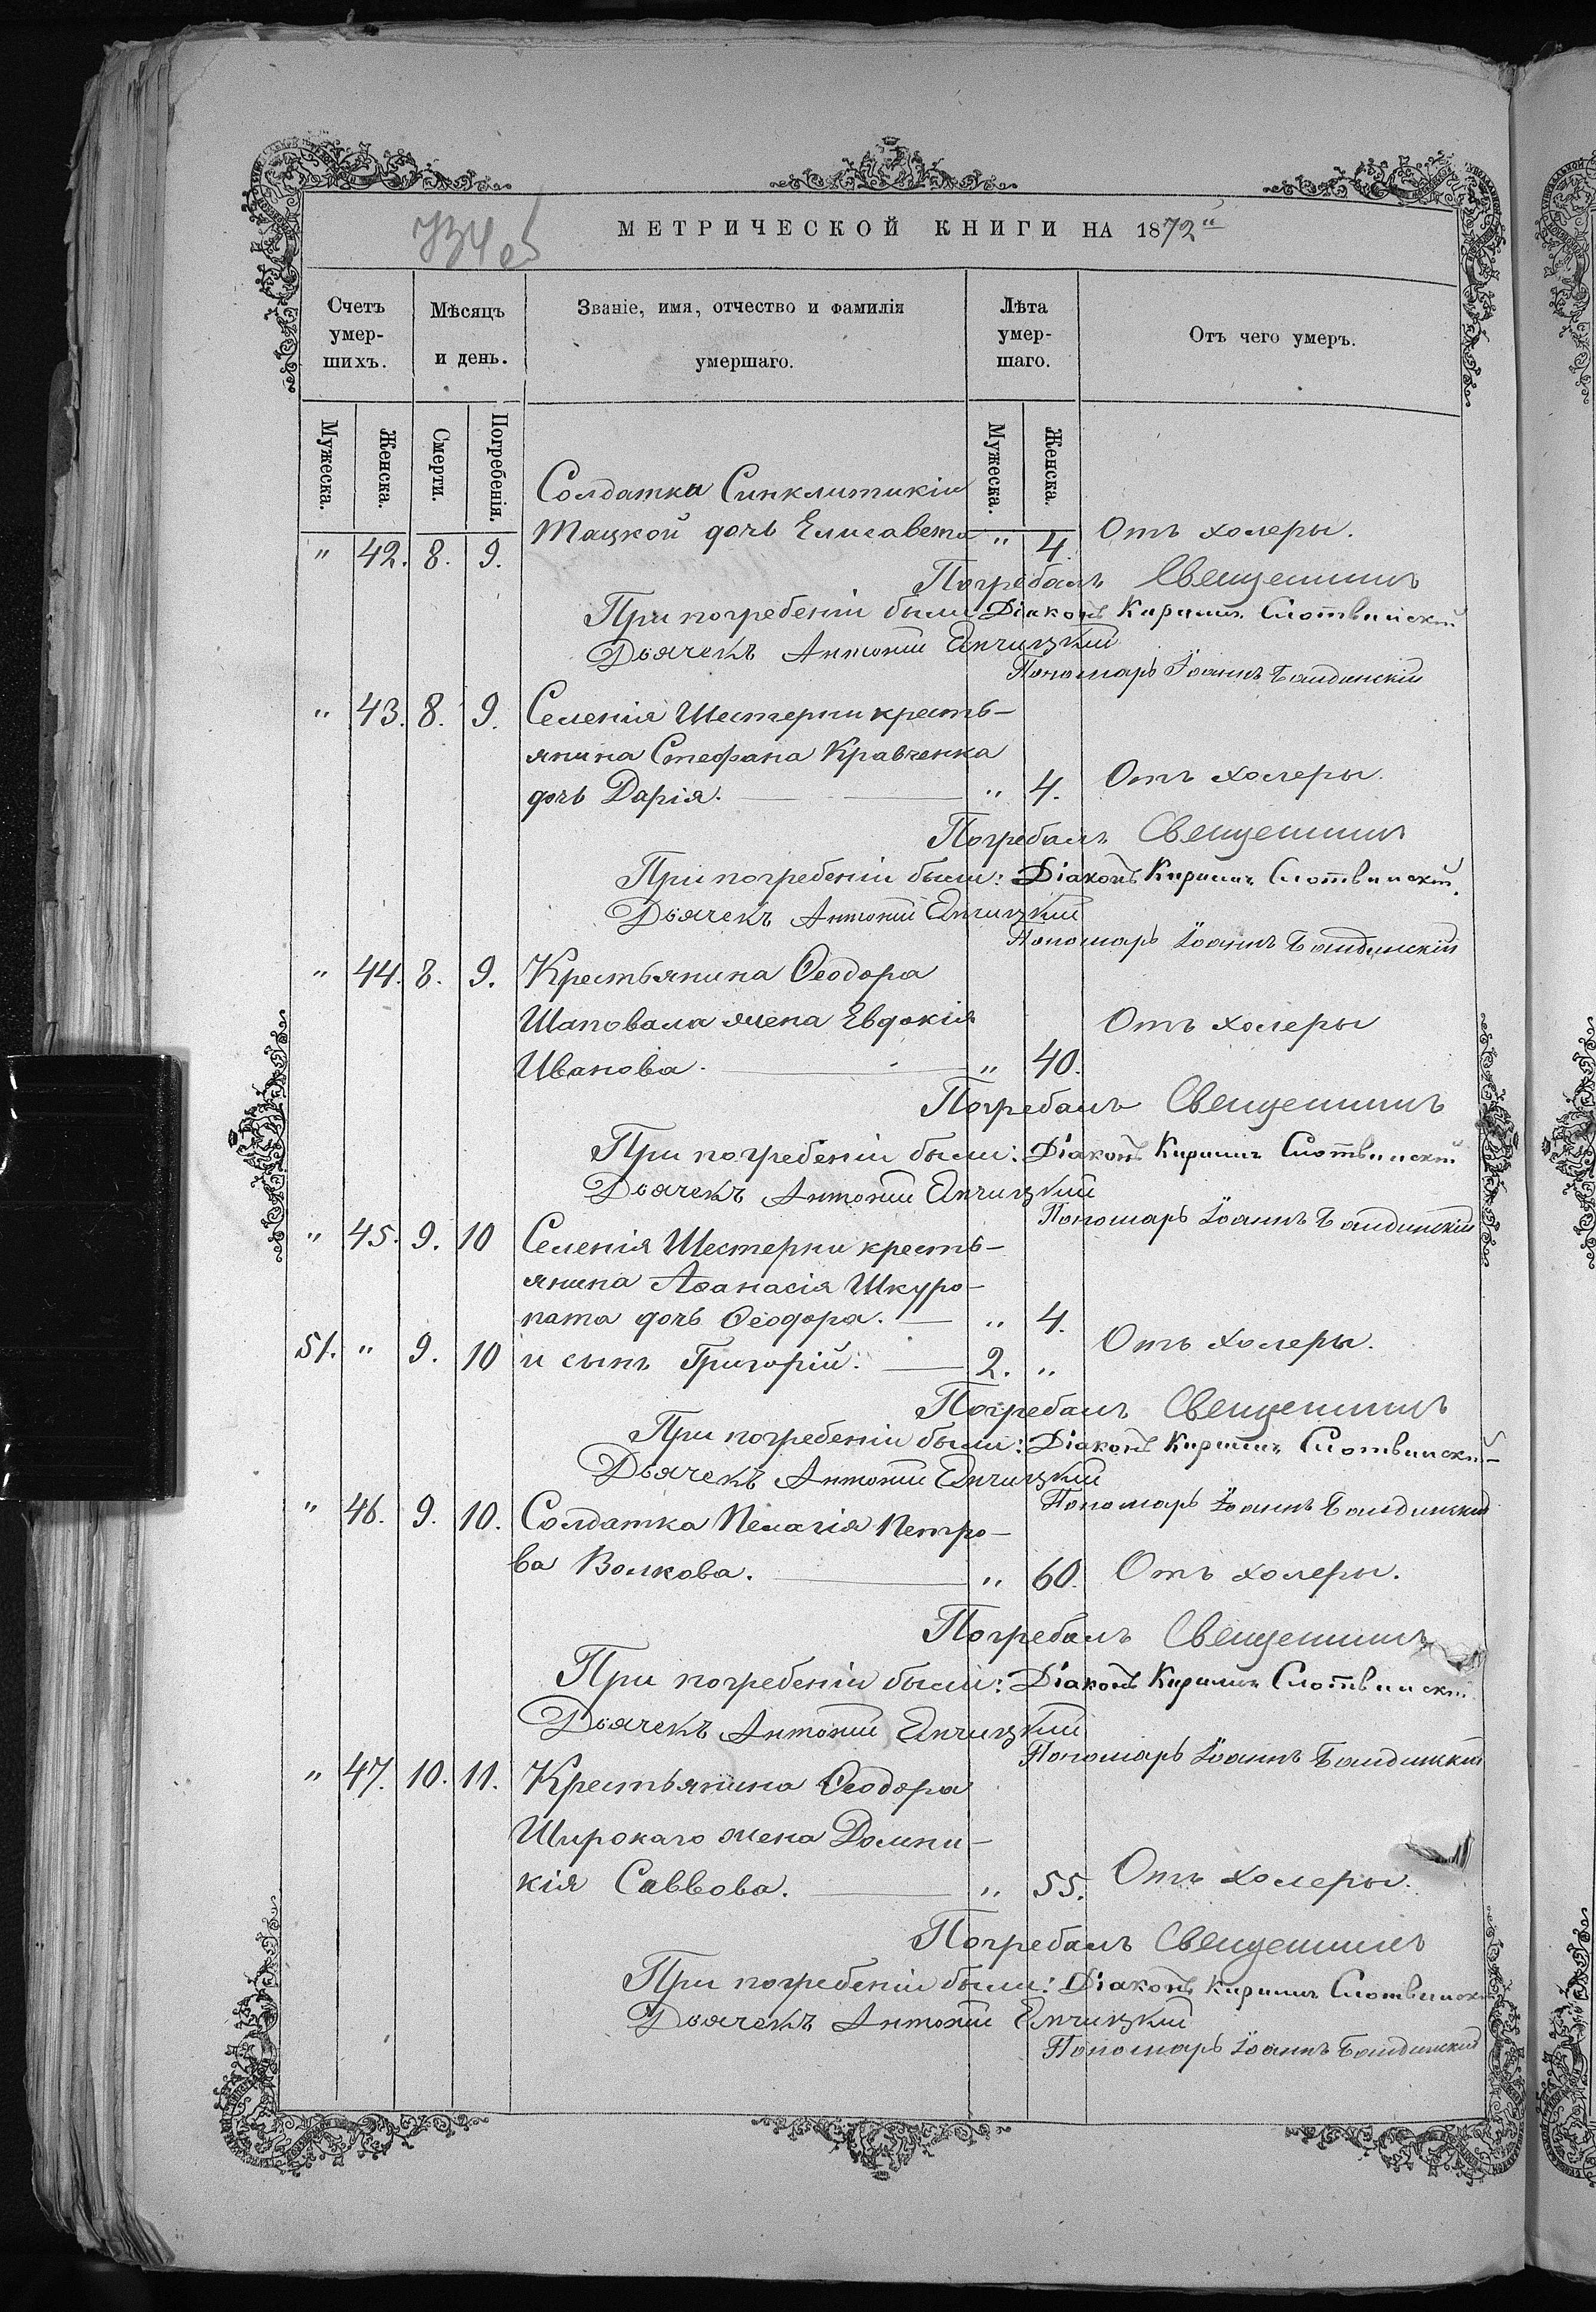 734 об
МЕТРИЧЕСКОЙ КНИГИ НА 1872й
Счетъ умер-шихъ.
Мѣсяцъ и день.
Званіе, имя, отчество и фамилія умершаго.
Лѣта умер-шаго.
Отъ чего умеръ.
Мужеска. Женска. Смерти. Погребенія. Мужеска. Женска.
Солдатки Синклитикіи
" 42. 8. 9. Тацкой дочь Елисавета " 4. Отъ холеры.
Погребалъ Священникъ
При погребеніи были Діаконъ Кирилъ Слотвинскій
Дьячекъ Антоній Епчицкій
Пономарь Іоаннъ Балдинскій
" 43. 8. 9. Селенія Шестерни кресть-
янина Стефана Кравченка
дочь Дарія. " 4. Отъ холеры.
Погребалъ Священникъ
При погребеніи были: Діаконъ Кирилъ Слотвинскій
Дьячекъ Антоній Епчицкій
Пономарь Іоаннъ Балдинскій
" 44. 8. 9. Крестьянина Ѳеодора
Шаповала жена Евдокія Отъ холеры
Иванова. " 40.
Погребалъ Священникъ
При погребеніи были: Діаконъ Кирилъ Слотвинскій
Дьячекъ Антоній Епчицкій
Пономарь Іоаннъ Балдинскій
" 45. 9. 10 Селенія Шестерни кресть-
янина Аѳанасія Шкуро-
пата дочь Ѳеодора. " 4.
51. " 9. 10 и сынъ Григорій. 2. " Отъ холеры.
Погребалъ Священникъ
При погребеніи были: Діаконъ Кирилъ Слотвинскій
Дьячекъ Антоній Епчицкій
Пономарь Іоаннъ Балдинскій
" 46. 9. 10. Солдатка Пелагія Петро-
ва Волкова. " 60. Отъ холеры.
Погребалъ Священникъ
При погребеніи были: Діаконъ Кирилъ Слотвинскій
Дьячекъ Антоній Епчицкій
Пономарь Іоаннъ Балдинскій
" 47. 10. 11. Крестьянина Ѳеодора
Широкаго жена Домни-
кія Саввова. " 55. Отъ холеры.
Погребалъ Священникъ
При погребеніи были: Діаконъ Кирилъ Слотвинск
Дьячекъ Антоній Епчицкій
Пономарь Іоаннъ Балдинскій